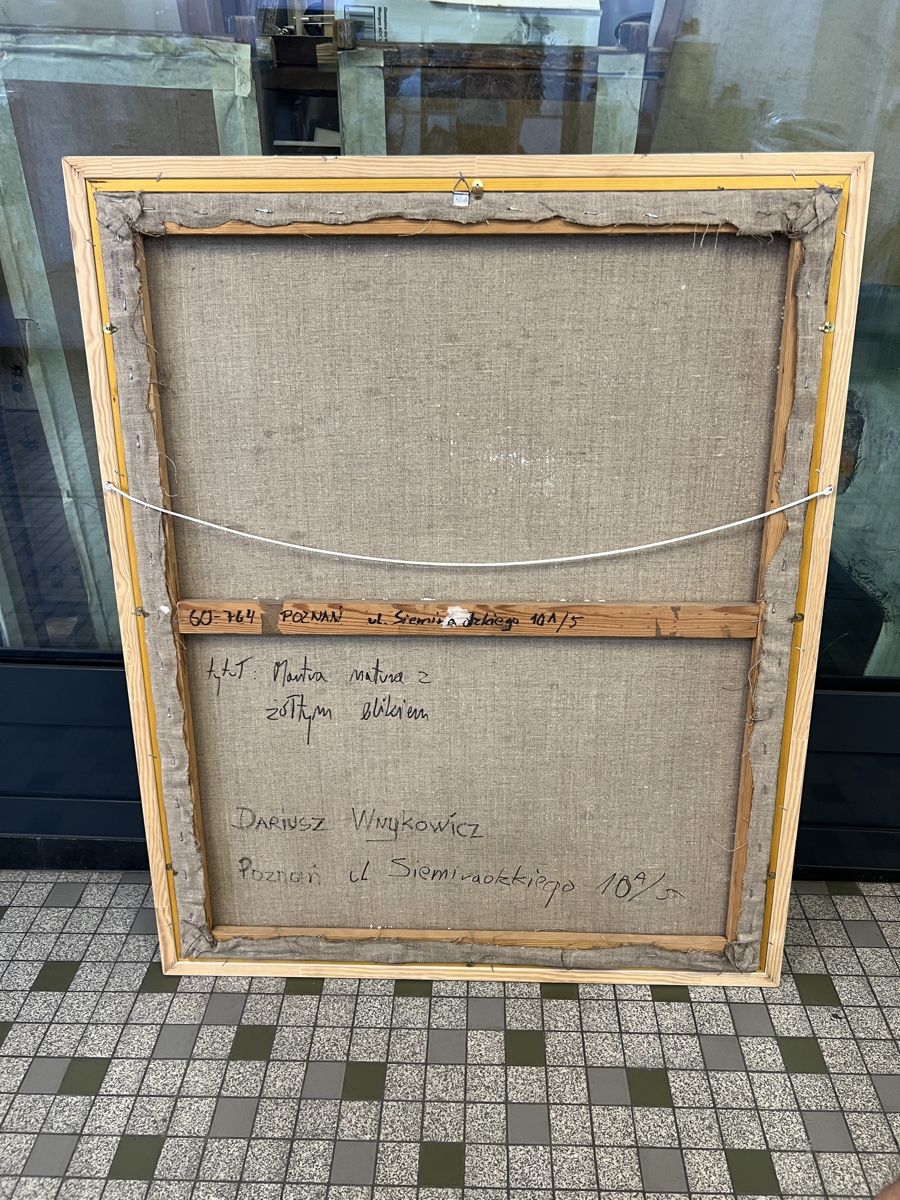 60-764 POZNAŃ ul. Siemiradzkiego 10A/5
tytuł: Martwa natura z
żółtym blikiem
DARIUSZ WNYKOWICZ
Poznań ul Siemiradzkiego 10A/5